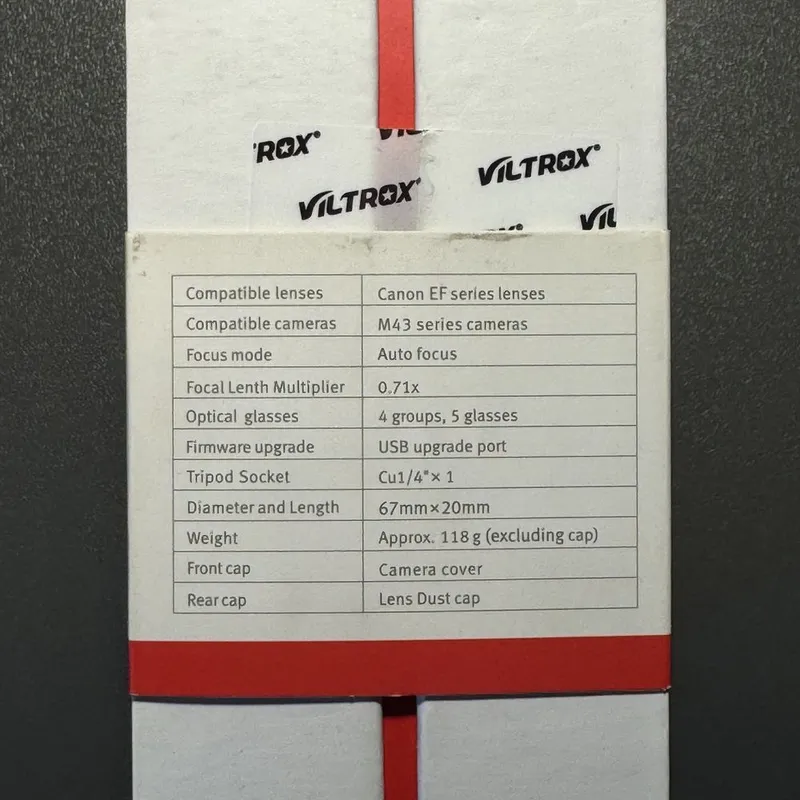 VILTROX®
VILTROX®
VILTROX®
Compatible lenses Canon EF series lenses
Compatible cameras M43 series cameras
Focus mode Auto focus
Focal Lenth Multiplier 0.71x
Optical glasses 4 groups, 5 glasses
Firmware upgrade USB upgrade port
Tripod Socket Cu1/4"× 1
Diameter and Length 67mm×20mm
Weight Approx. 118 g (excluding cap)
Front cap Camera cover
Rear cap Lens Dust cap